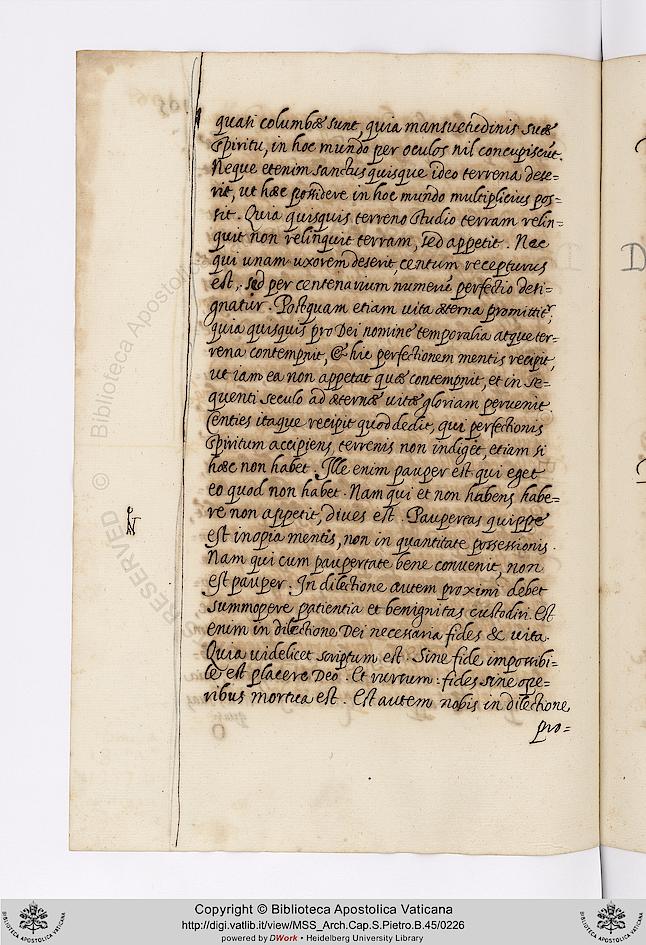 quasi columbæ sunt, quia mansuetudinis suæ
spiritu, in hoc mundo per oculos nil concupiscūt.
Neque etenim sanctus quisque ideo terrena dese=
rit, ut hæc possidere in hoc mundo multiplicius pos=
sit. Quia quisquis terreno studio terram relin=
quit non relinquit terram, sed appetit. Nec
qui unam uxorem deserit, centum recepturus
est, sed per centenarium numerū perfectio desi=
gnatur. Postquam etiam vita æterna promittitr,
quia quisquis pro Dei nomine temporalia atque ter=
rena contemnit, & hic perfectionem mentis recipit,
ut iam ea non appetat quæ contempnit, et in se=
quenti seculo ad æternæ vitæ gloriam pervenit.
Centies itaque recipit quod dedit, qui perfectionis
spiritum accipiens, terrenis non indiget, etiam si
hæc non habet. Ille enim pauper est qui eget
eo quod non habet. Nam qui et non habens, habe=
re non appetit, dives est. Paupertas quippe
est inopia mentis, non in quantitate possessionis.
Nam qui cum paupertate bene convenit, non
est pauper. In dilectione autem proximi debet
summopere patientia et benignitas custodiri. Est
enim in dilectione Dei necessaria fides & vita.
Quia videlicet scriptum est. Sine fide impossibi=
le est placere Deo. Et rursum: fides sine ope=
ribus mortua est. Est autem nobis in dilectione
pro=
RESERVED © Biblioteca Apostolica
Copyright © Biblioteca Apostolica Vaticana
http://digi.vatlib.it/view/MSS_Arch.Cap.S.Pietro.B.45/0226
powered by DWork • Heidelberg University Library